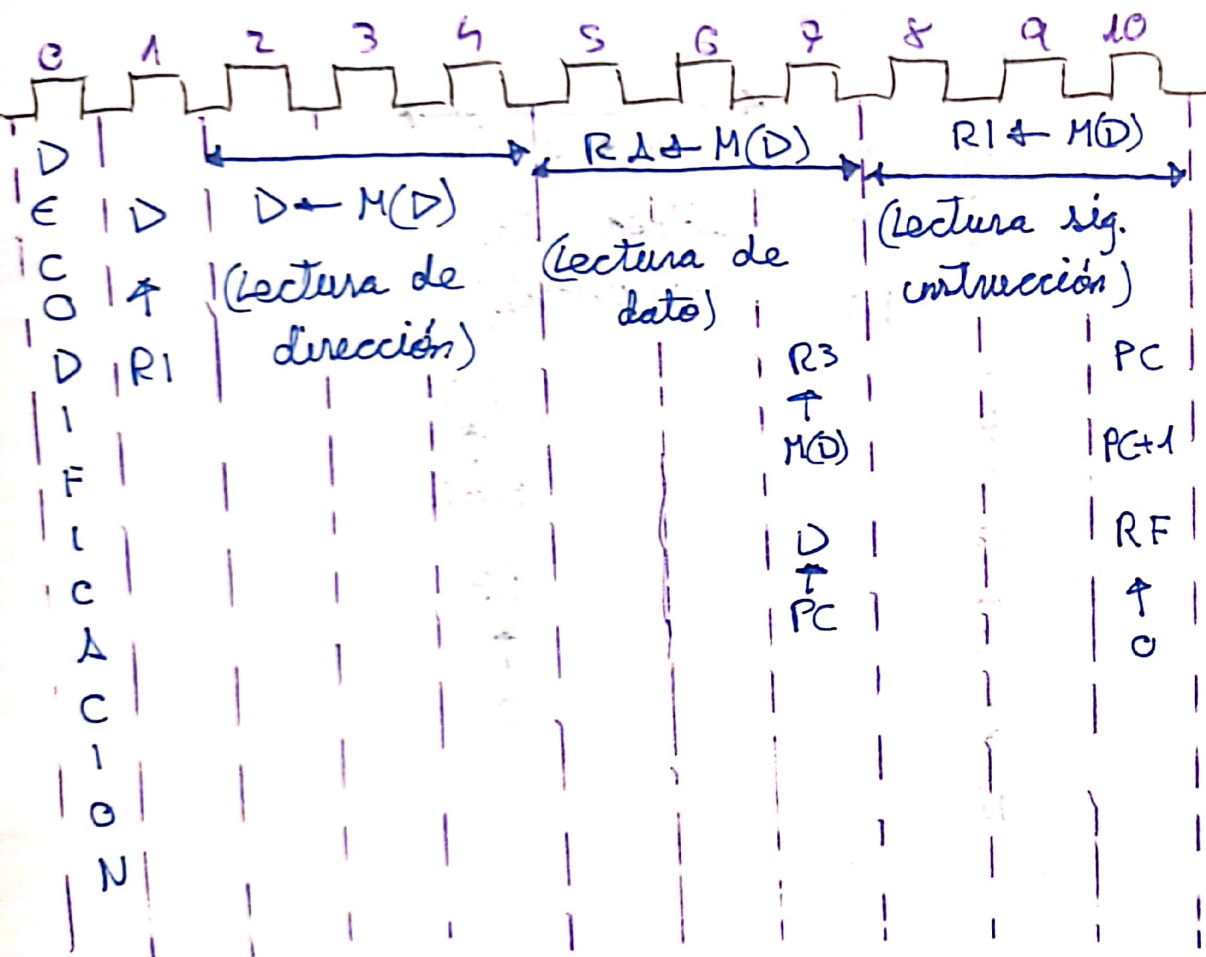 0 1 2 3 4 5 6 7 8 9 10
DECODIFICACION
D
↑
RI
D ← M(D)
(Lectura de
dirección)
RA ← M(D)
(Lectura de
dato)
R3
↑
M(D)
D
↑
PC
RI ← M(D)
(Lectura sig.
instrucción)
PC
PC+1
RF
↑
0